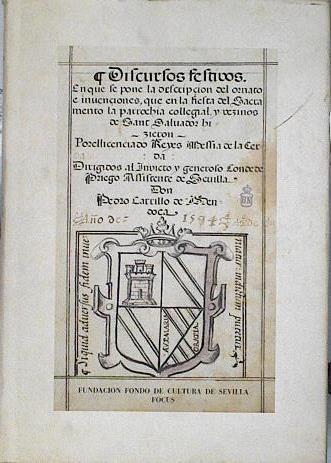 ¶ Discursos festivos.
En que se pone la descripcion del ornato
e invenciones, que en la fiesta del Sacra
mento la parrochia collegial, y vezinos
de Sant Saluador hi
zieron
Por el licenciado Reyes Messia de la Cer
da
Dirigidos al Invicto y generoso Conde de
Priego Assistente de Sevilla
Don
Pedro Carrillo de Men
doca
Año de 1594
Siquid adversus fidem inve
AVE MARIA
GRATIA
FUNDACION FONDO DE CULTURA DE SEVILLA
FOCUS